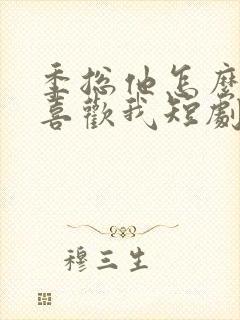 季总他怎麼
喜歡我短劇
穆三生